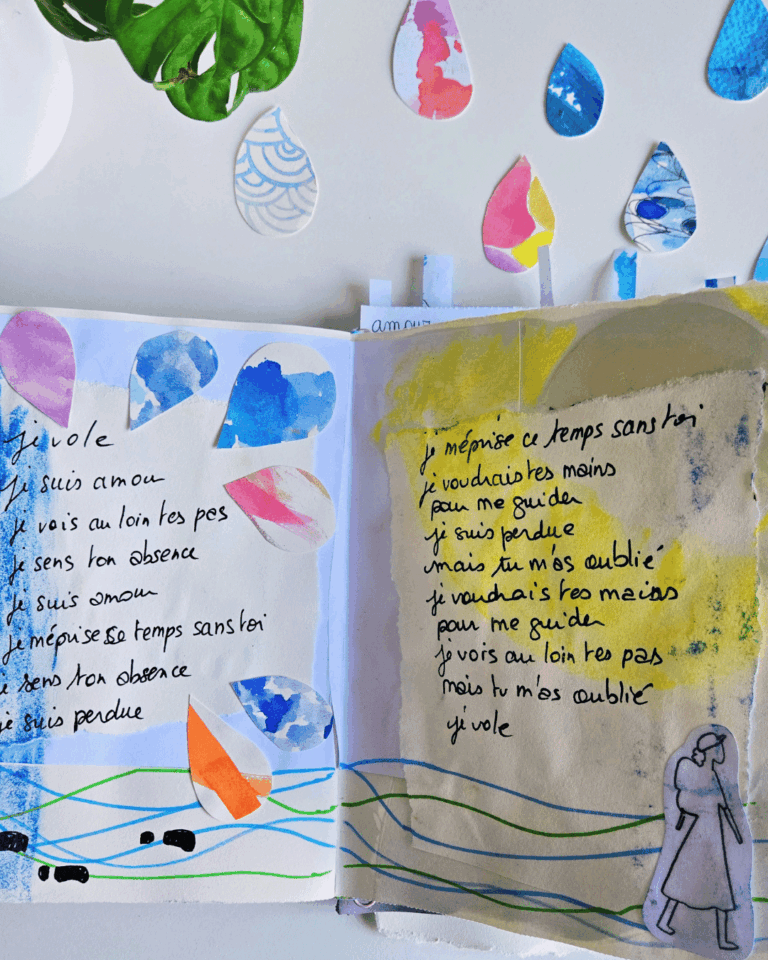 amour
je vole
je suis amour
je vois au loin tes pas
je sens ton absence
je suis amour
je méprise ce temps sans toi
je sens ton absence
je suis perdue
je méprise ce temps sans toi
je voudrais tes mains
pour me guider
je suis perdue
mais tu m'as oublié
je voudrais tes mains
pour me guider
je vois au loin tes pas
mais tu m'as oublié
je vole